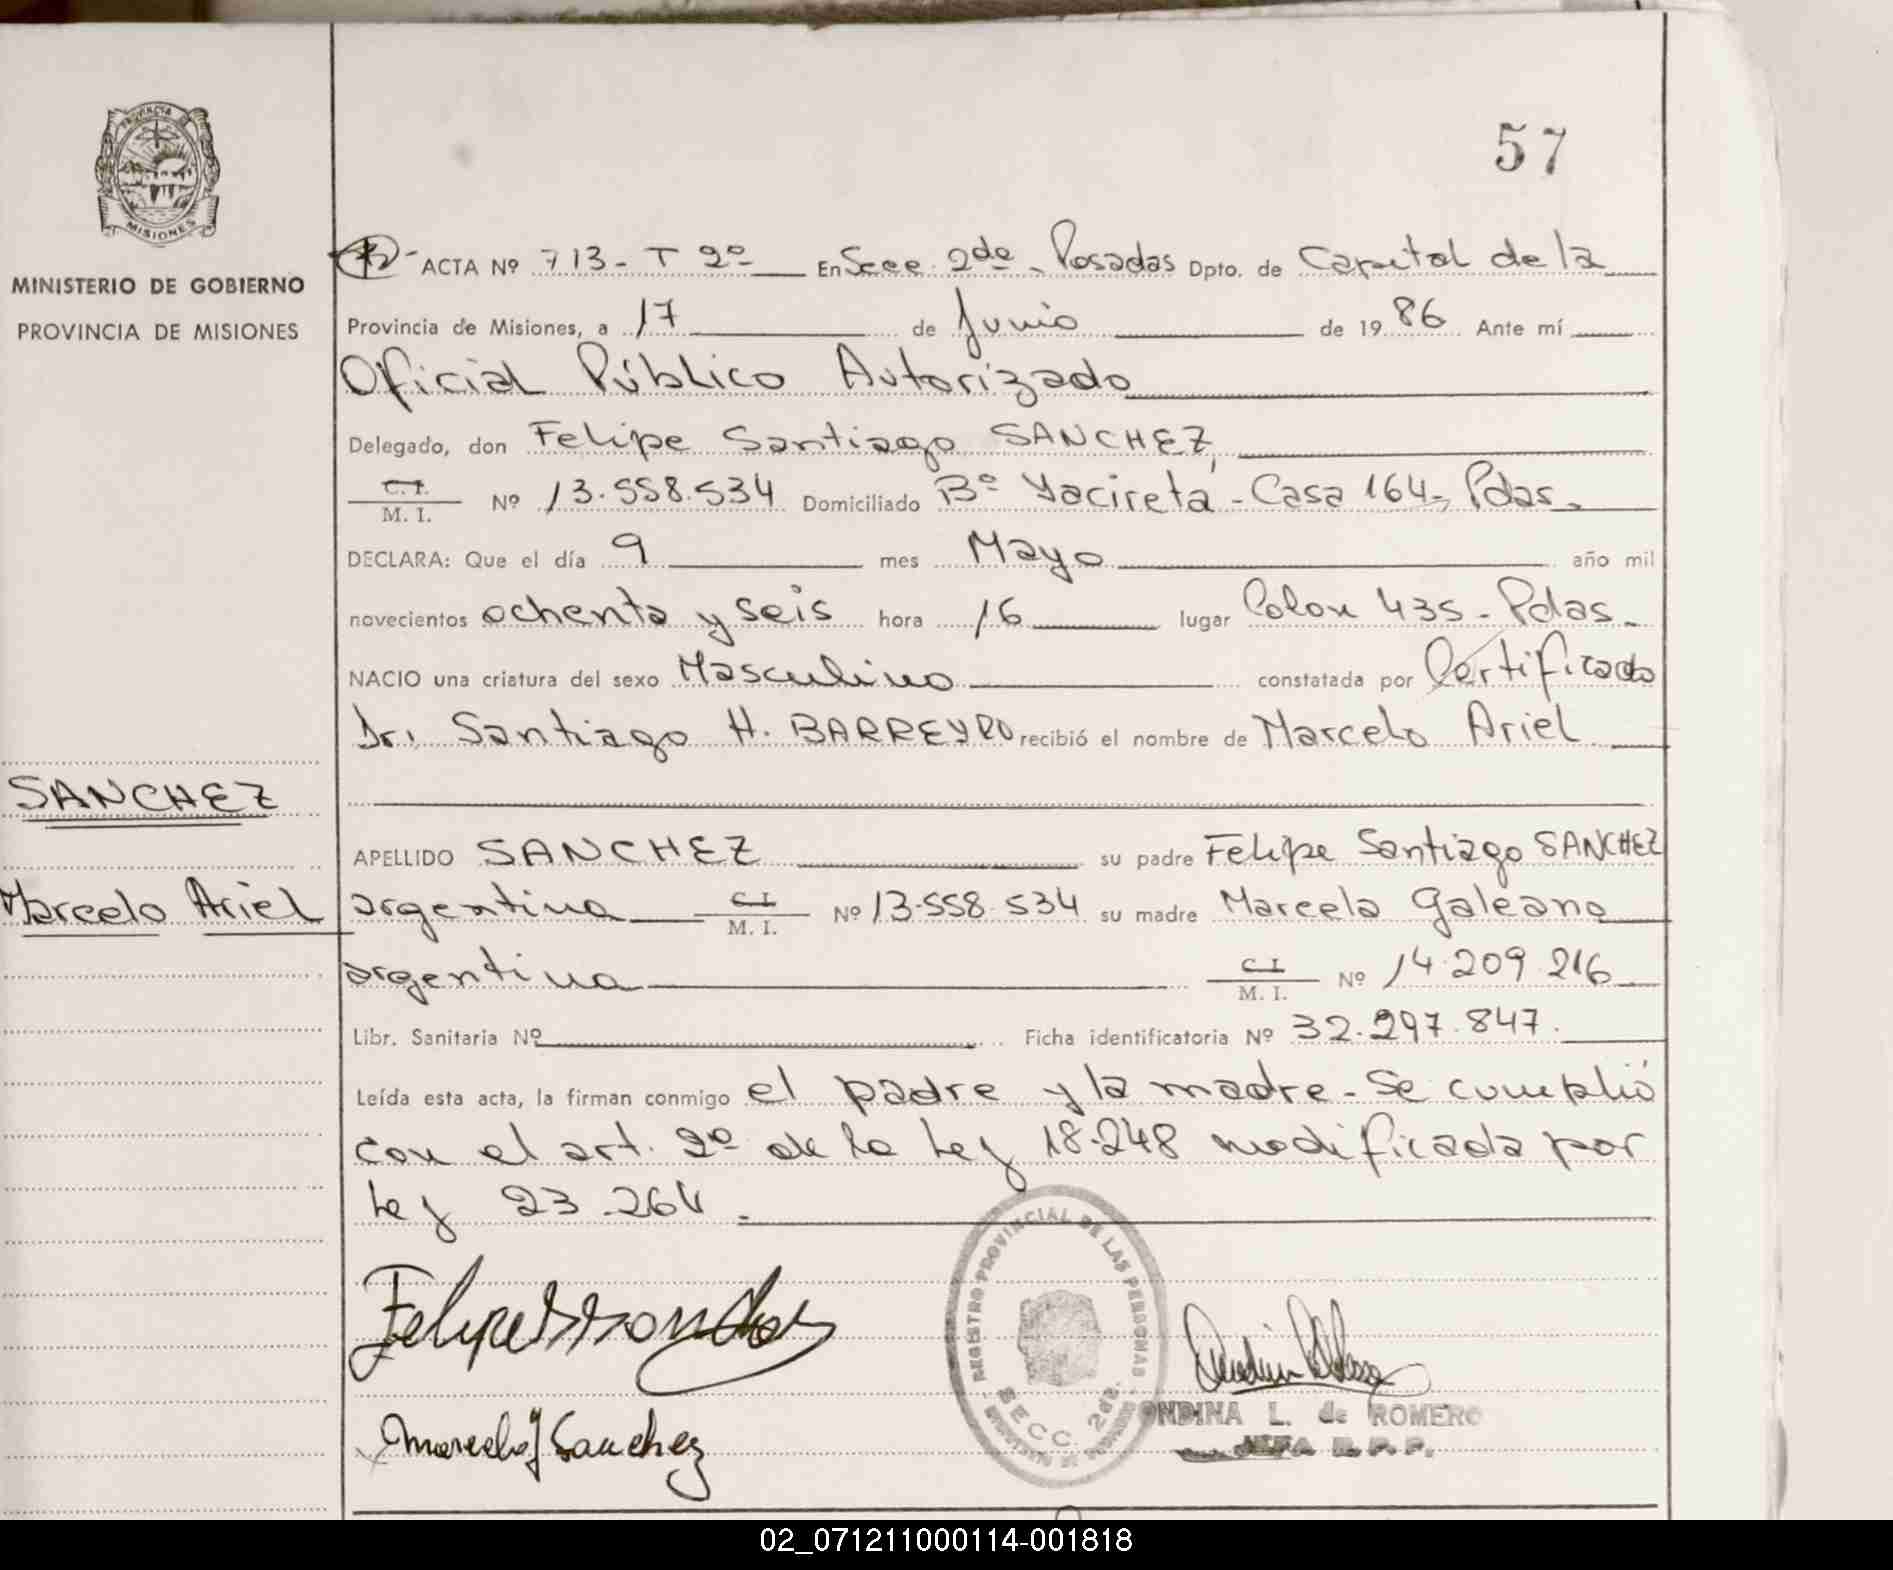 57
PROVINCIA DE
MISIONES
MINISTERIO DE GOBIERNO
PROVINCIA DE MISIONES
ACTA Nº 713- T 2º En Secc. 2da. Posadas Dpto. de Capital de la
Provincia de Misiones, a 17 de Junio de 1986 Ante mí
Oficial Público Autorizado
Delegado, don Felipe Santiago SANCHEZ,
C. I.
M. I. Nº 13.558.534 Domiciliado Bº Yacireta - Casa 164-, Pdas.
DECLARA: Que el día 9 mes Mayo año mil
novecientos ochenta y seis hora 16 lugar Colon 435 - Pdas.
NACIO una criatura del sexo Masculino constatada por Certificado
Dr. Santiago H. BARREYRO recibió el nombre de Marcelo Ariel
SANCHEZ
Marcelo Ariel
APELLIDO SANCHEZ su padre Felipe Santiago SANCHEZ
argentina C I M. I. Nº 13.558.534 su madre Marcela Galeano
argentina C I M. I. Nº 14.209.216
Libr. Sanitaria Nº Ficha identificatoria Nº 32.297.847.
Leída esta acta, la firman conmigo el padre y la madre - Se cumplió
con el art. 2º de la Ley 18.248 modificada por
Ley 23.264.
REGISTRO PROVINCIAL DE LAS PERSONAS
SECC. 2da.
Marcela G Sanchez
ONDINA L. de ROMERO
JEFA R. P. P.
02_071211000114-001818